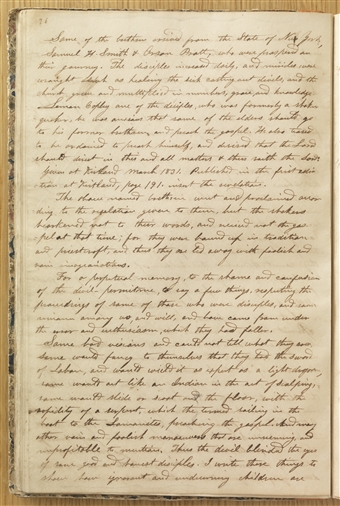 26
Some of the brethren arived from the State of New York,
Samuel H. Smith & Orson Pratt, who was prospered on
this journey. The disciples increased daily, and miricles were
wrought such as healing the sick casting out devils, and the
church grew and multiplied in numbers, grace and knowledge.
Leaman Copley one of the deciples, who was formerly a shaker
quaker, he was anxious that some of the elders should go
to his former brethren and preach the gospel. He also teased
to be ordained to preach himself, and desired that the Lord
should direct in this and all matters & thus saith the Lord.
Given at Kirtland March 1831. Published in the first edi-
tion at Kirtland, page 191. insert the revelation.
The above named brethren went and proclaimed accor
ding to the revelation given to them, but the shakers
hearkened not to their words, and received not the gos
pel at that time; for they were bound up in tradition
and priestcraft, and thus they are led away with foolish and
vain imaginations.
For a perpetual memory, to the shame and confusion
of the devil permit me to say a few things, respecting the
proceedings of some of those who were disciples, and some
remains among us and will, and have came from under
the error and enthusiasm, which they had fallen.
Some had visions and could not tell what they saw,
Some would fancy to themselves that they had the sword
of Laban, and would wield it as expert as a light dragoon,
some would act like an Indian in the act of scalping,
some would slide or scoot on the floor, with the
rapidity of a serpent, which the termed sailing in the
boat to the Lamanites, preaching the gospel. And many
other vain and foolish manoeuvers that are unseeming, and
unprofitable to mention. Thus the devil blinded the eyes
of some good and honest disciples. I write these things to
show how ignorant and undiscerning children are